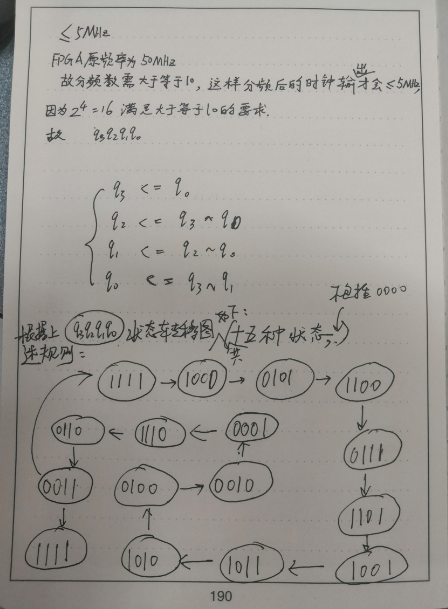 ≤5MHz
FPGA原频率为50MHz
故分频数需大于等于10,这样分频后的时钟输出才会≤5MHz,
因为2^4=16 满足大于等于10的要求.
故 q3q2q1q0
q3 <= q0
q2 <= q3 ~ q0
q1 <= q2 ~ q0
q0 <= q3 ~ q1
不包括0000
根据上 q3q2q1q0 状态转移图 如下: (共十五种状态,)
述规则:
1111 → 1000 → 0101 → 1100
0110 ← 1110 ← 0001
0111
0011 0100 → 0010
1101
1111 1010 ← 1011 ← 1001
190